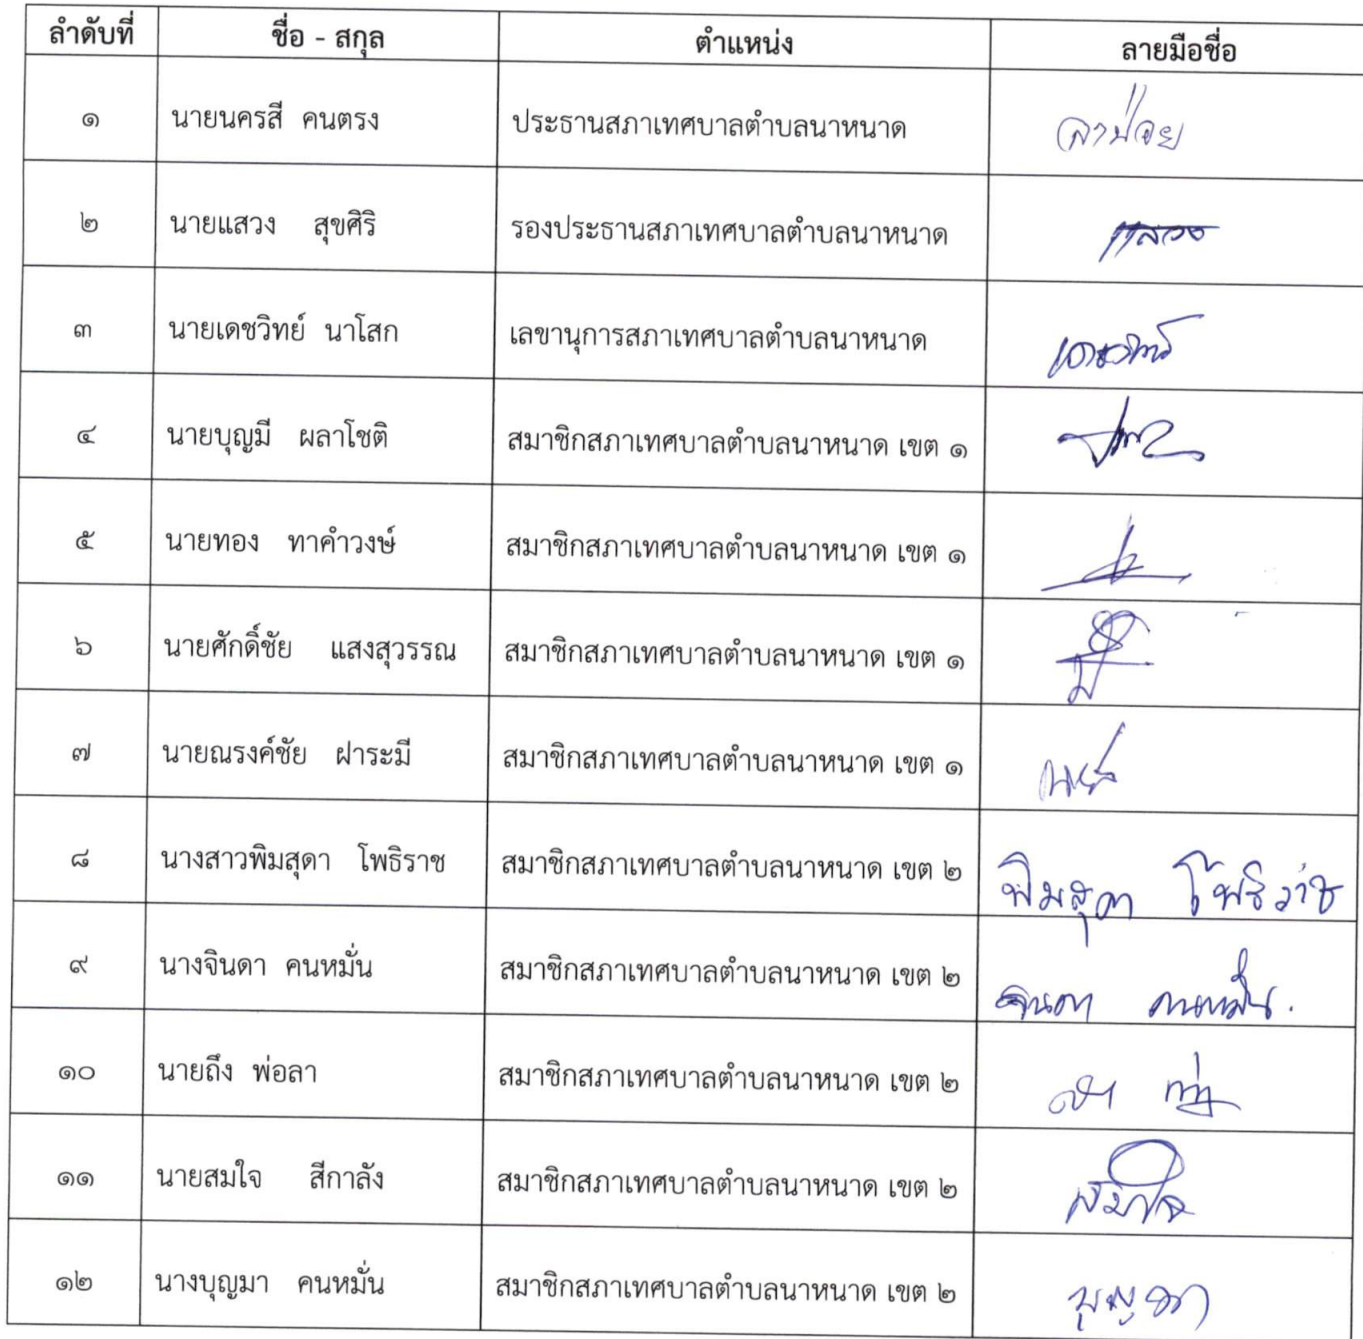 ลำดับที่ ชื่อ - สกุล ตำแหน่ง ลายมือชื่อ
๑ นายนครสี คนตรง ประธานสภาเทศบาลตำบลนาหนาด
๒ นายแสวง สุขศิริ รองประธานสภาเทศบาลตำบลนาหนาด แสวง
๓ นายเดชวิทย์ นาโสก เลขานุการสภาเทศบาลตำบลนาหนาด เดชวิทย์
๔ นายบุญมี ผลาโชติ สมาชิกสภาเทศบาลตำบลนาหนาด เขต ๑
๕ นายทอง ทาคำวงษ์ สมาชิกสภาเทศบาลตำบลนาหนาด เขต ๑
๖ นายศักดิ์ชัย แสงสุวรรณ สมาชิกสภาเทศบาลตำบลนาหนาด เขต ๑
๗ นายณรงค์ชัย ฝาระมี สมาชิกสภาเทศบาลตำบลนาหนาด เขต ๑
๘ นางสาวพิมสุดา โพธิราช สมาชิกสภาเทศบาลตำบลนาหนาด เขต ๒ พิมสุดา โพธิราช
๙ นางจินดา คนหมั่น สมาชิกสภาเทศบาลตำบลนาหนาด เขต ๒ จินดา คนหมั่น.
๑๐ นายถึง พ่อลา สมาชิกสภาเทศบาลตำบลนาหนาด เขต ๒
๑๑ นายสมใจ สีกาลัง สมาชิกสภาเทศบาลตำบลนาหนาด เขต ๒ สมใจ
๑๒ นางบุญมา คนหมั่น สมาชิกสภาเทศบาลตำบลนาหนาด เขต ๒ บุญมา